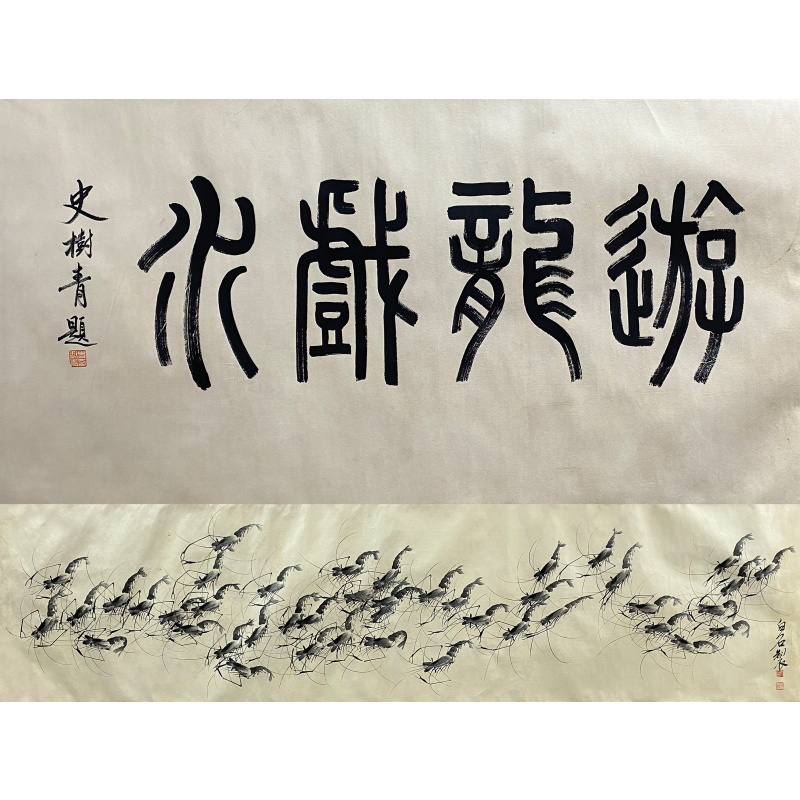 遊龍戲水
史樹青題
白石製